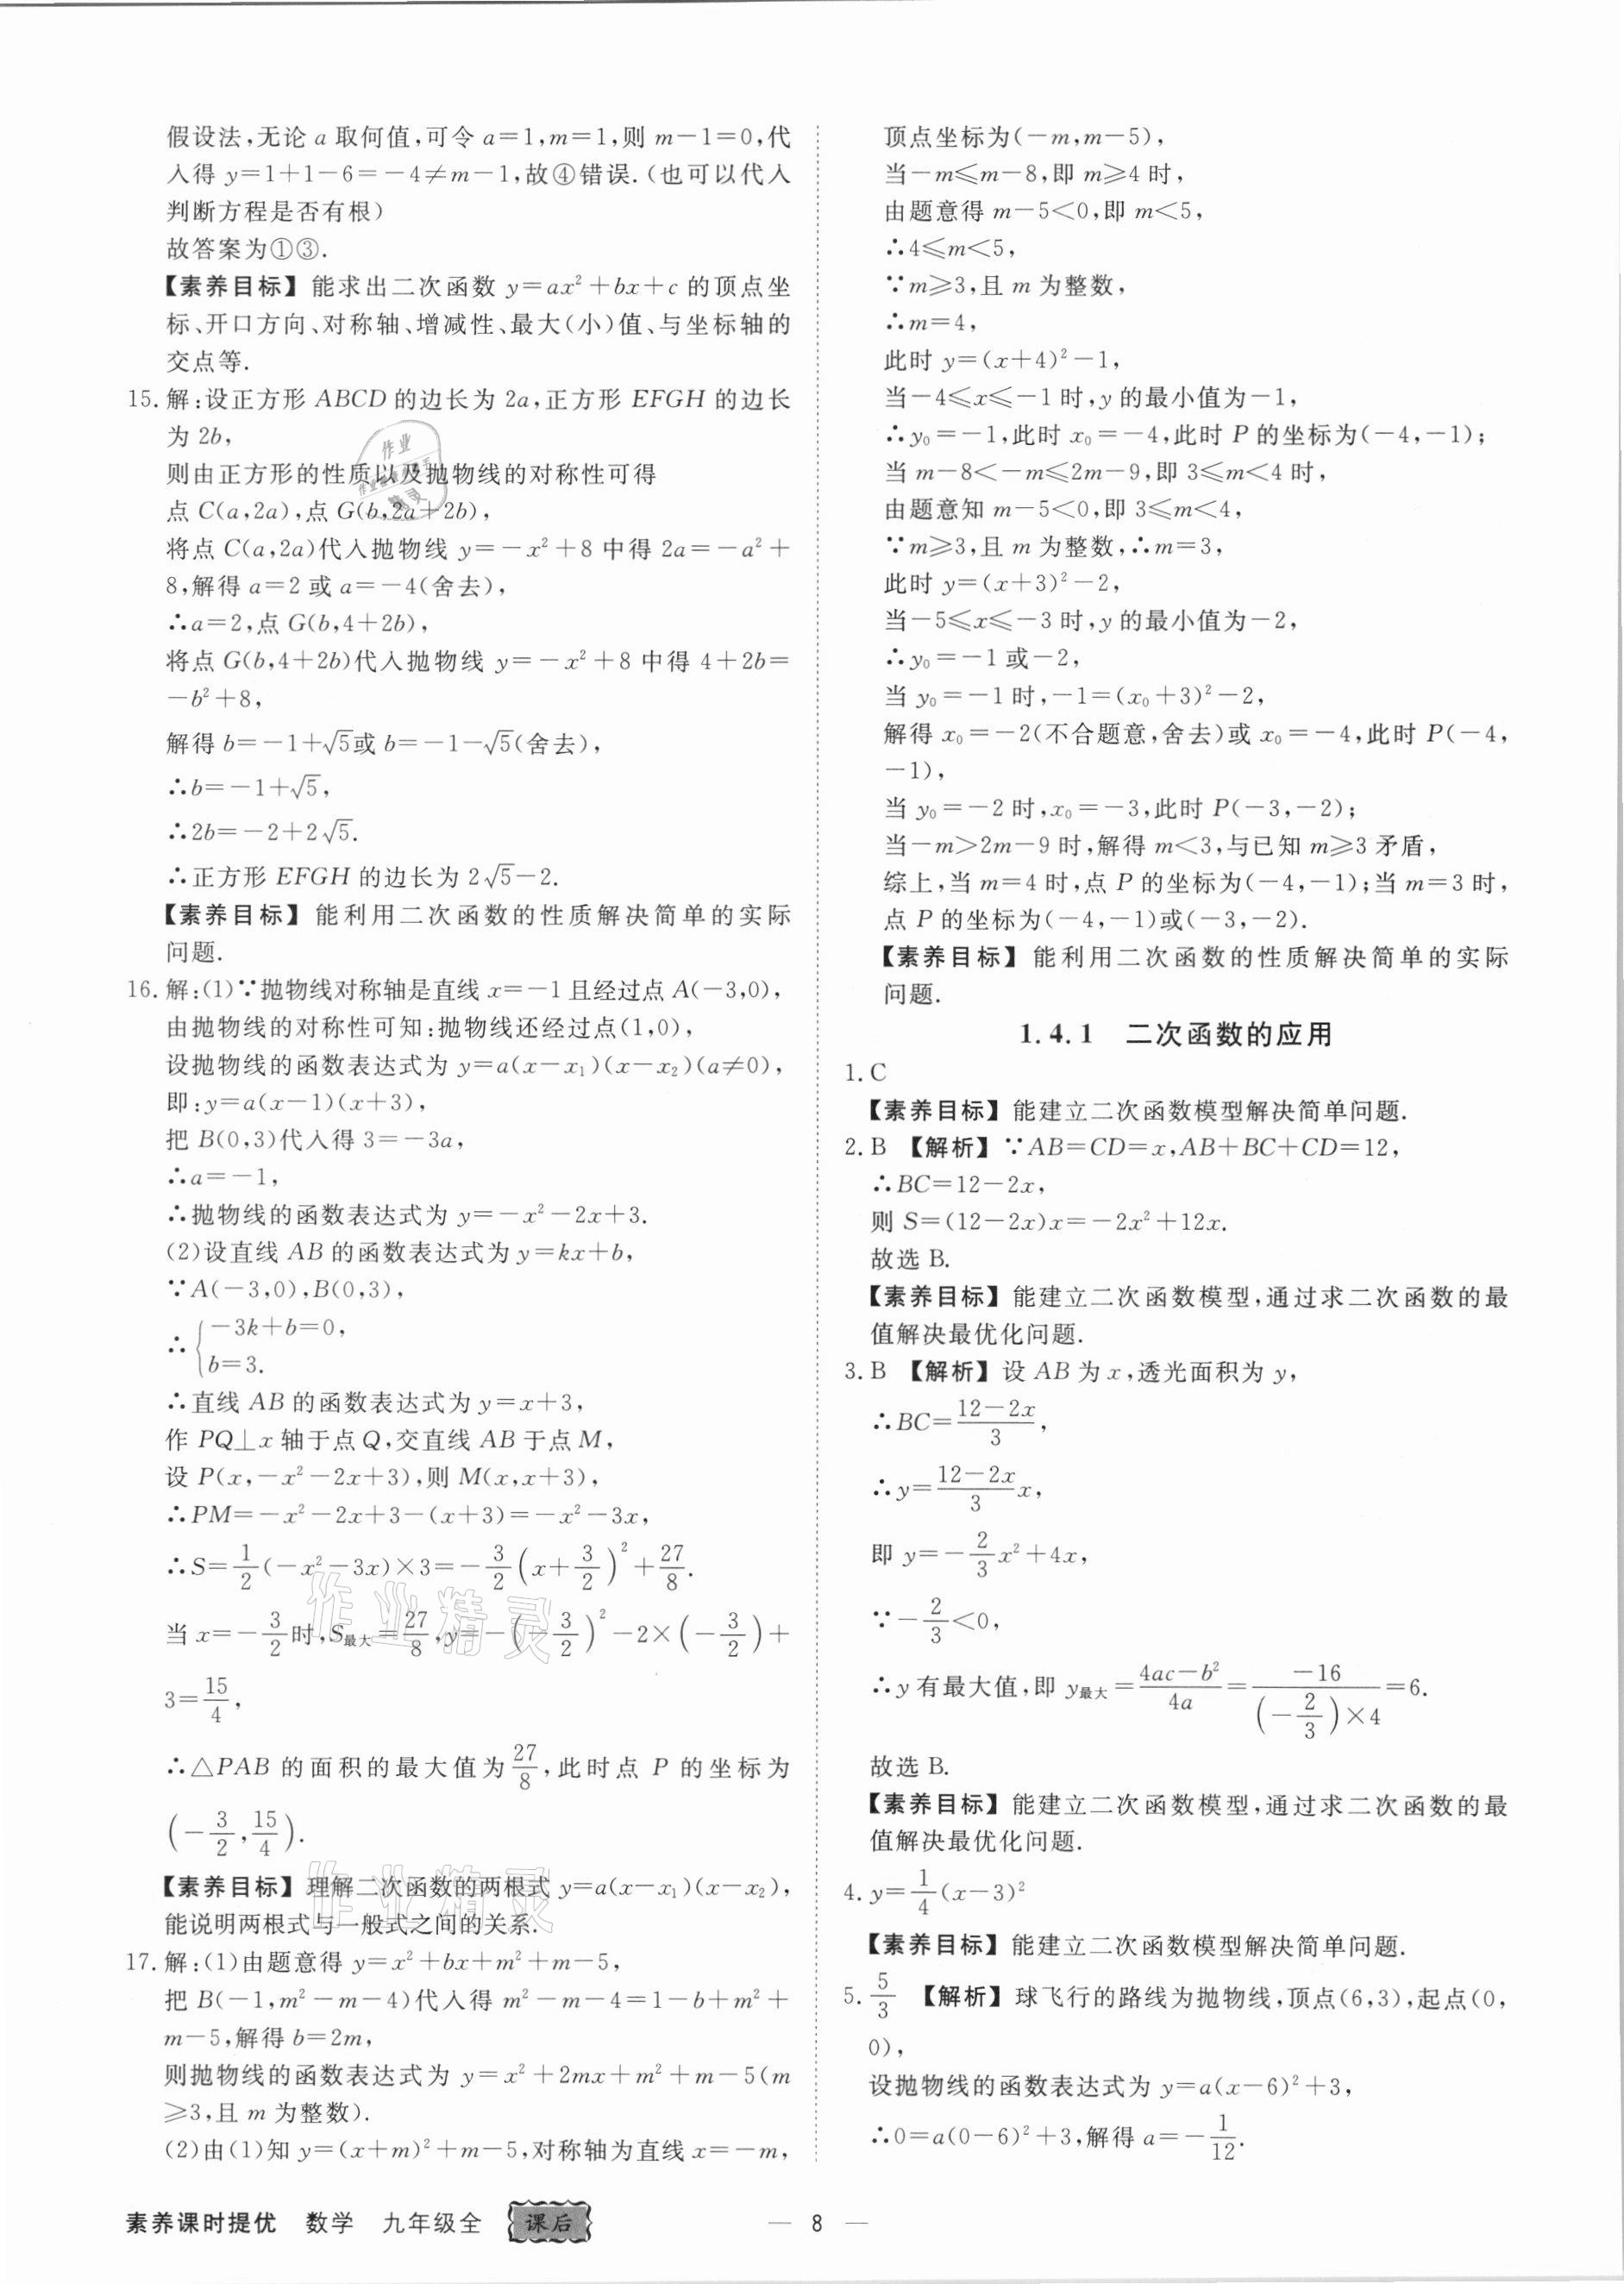 假设法,无论 a 取何值,可令 a=1,m=1,则 m-1=0,代
入得 y=1+1-6=-4≠m-1,故④错误.(也可以代入
判断方程是否有根)
故答案为①③.
【素养目标】 能求出二次函数 y=ax²+bx+c 的顶点坐
标、开口方向、对称轴、增减性、最大(小)值、与坐标轴的
交点等.
15. 解:设正方形 ABCD 的边长为 2a,正方形 EFGH 的边长
为 2b,
则由正方形的性质以及抛物线的对称性可得
点 C(a,2a),点 G(b,2a+2b),
将点 C(a,2a)代入抛物线 y=-x²+8 中得 2a=-a²+
8,解得 a=2 或 a=-4(舍去),
∴a=2,点 G(b,4+2b),
将点 G(b,4+2b)代入抛物线 y=-x²+8 中得 4+2b=
-b²+8,
解得 b=-1+√5或 b=-1-√5(舍去),
∴b=-1+√5,
∴2b=-2+2√5.
∴正方形 EFGH 的边长为 2√5-2.
【素养目标】 能利用二次函数的性质解决简单的实际
问题.
16. 解:(1)∵抛物线对称轴是直线 x=-1 且经过点 A(-3,0),
由抛物线的对称性可知:抛物线还经过点(1,0),
设抛物线的函数表达式为 y=a(x-x₁)(x-x₂)(a≠0),
即:y=a(x-1)(x+3),
把 B(0,3)代入得 3=-3a,
∴a=-1,
∴抛物线的函数表达式为 y=-x²-2x+3.
(2)设直线 AB 的函数表达式为 y=kx+b,
∵A(-3,0),B(0,3),
∴{-3k+b=0,
b=3.
∴直线 AB 的函数表达式为 y=x+3,
作 PQ⊥x 轴于点 Q,交直线 AB 于点 M,
设 P(x,-x²-2x+3),则 M(x,x+3),
∴PM=-x²-2x+3-(x+3)=-x²-3x,
∴S=1/2(-x²-3x)×3=-3/2(x+3/2)²+27/8.
当 x=-3/2时,S最大=27/8,y=-(-3/2)²-2×(-3/2)+
3=15/4,
∴△PAB 的面积的最大值为27/8,此时点 P 的坐标为
(-3/2,15/4).
【素养目标】理解二次函数的两根式 y=a(x-x₁)(x-x₂),
能说明两根式与一般式之间的关系.
17. 解:(1)由题意得 y=x²+bx+m²+m-5,
把 B(-1,m²-m-4)代入得 m²-m-4=1-b+m²+
m-5,解得 b=2m,
则抛物线的函数表达式为 y=x²+2mx+m²+m-5(m
≥3,且 m 为整数).
(2)由(1)知 y=(x+m)²+m-5,对称轴为直线 x=-m,
顶点坐标为(-m,m-5),
当-m≤m-8,即 m≥4 时,
由题意得 m-5<0,即 m<5,
∴4≤m<5,
∵m≥3,且 m 为整数,
∴m=4,
此时 y=(x+4)²-1,
当-4≤x≤-1 时,y 的最小值为-1,
∴y₀=-1,此时 x₀=-4,此时 P 的坐标为(-4,-1);
当 m-8<-m≤2m-9,即 3≤m<4 时,
由题意知 m-5<0,即 3≤m<4,
∵m≥3,且 m 为整数,∴m=3,
此时 y=(x+3)²-2,
当-5≤x≤-3 时,y 的最小值为-2,
∴y₀=-1 或-2,
当 y₀=-1 时,-1=(x₀+3)²-2,
解得 x₀=-2(不合题意,舍去)或 x₀=-4,此时 P(-4,
-1),
当 y₀=-2 时,x₀=-3,此时 P(-3,-2);
当-m>2m-9 时,解得 m<3,与已知 m≥3 矛盾,
综上,当 m=4 时,点 P 的坐标为(-4,-1);当 m=3 时,
点 P 的坐标为(-4,-1)或(-3,-2).
【素养目标】 能利用二次函数的性质解决简单的实际
问题.
1.4.1 二次函数的应用
1. C
【素养目标】能建立二次函数模型解决简单问题.
2. B 【解析】∵AB=CD=x,AB+BC+CD=12,
∴BC=12-2x,
则 S=(12-2x)x=-2x²+12x.
故选 B.
【素养目标】能建立二次函数模型,通过求二次函数的最
值解决最优化问题.
3. B 【解析】设 AB 为 x,透光面积为 y,
∴BC=(12-2x)/3,
∴y=(12-2x)/3 x,
即 y=-2/3x²+4x,
∵-2/3<0,
∴y 有最大值,即 y最大=(4ac-b²)/4a=-16/((-2/3)×4)=6.
故选 B.
【素养目标】能建立二次函数模型,通过求二次函数的最
值解决最优化问题.
4. y=1/4(x-3)²
【素养目标】能建立二次函数模型解决简单问题.
5. 5/3 【解析】球飞行的路线为抛物线,顶点(6,3),起点(0,
0),
设抛物线的函数表达式为 y=a(x-6)²+3,
∴0=a(0-6)²+3,解得 a=-1/12.
素养课时提优 数学 九年级全 课后
— 8 —
作业精灵
作业精灵